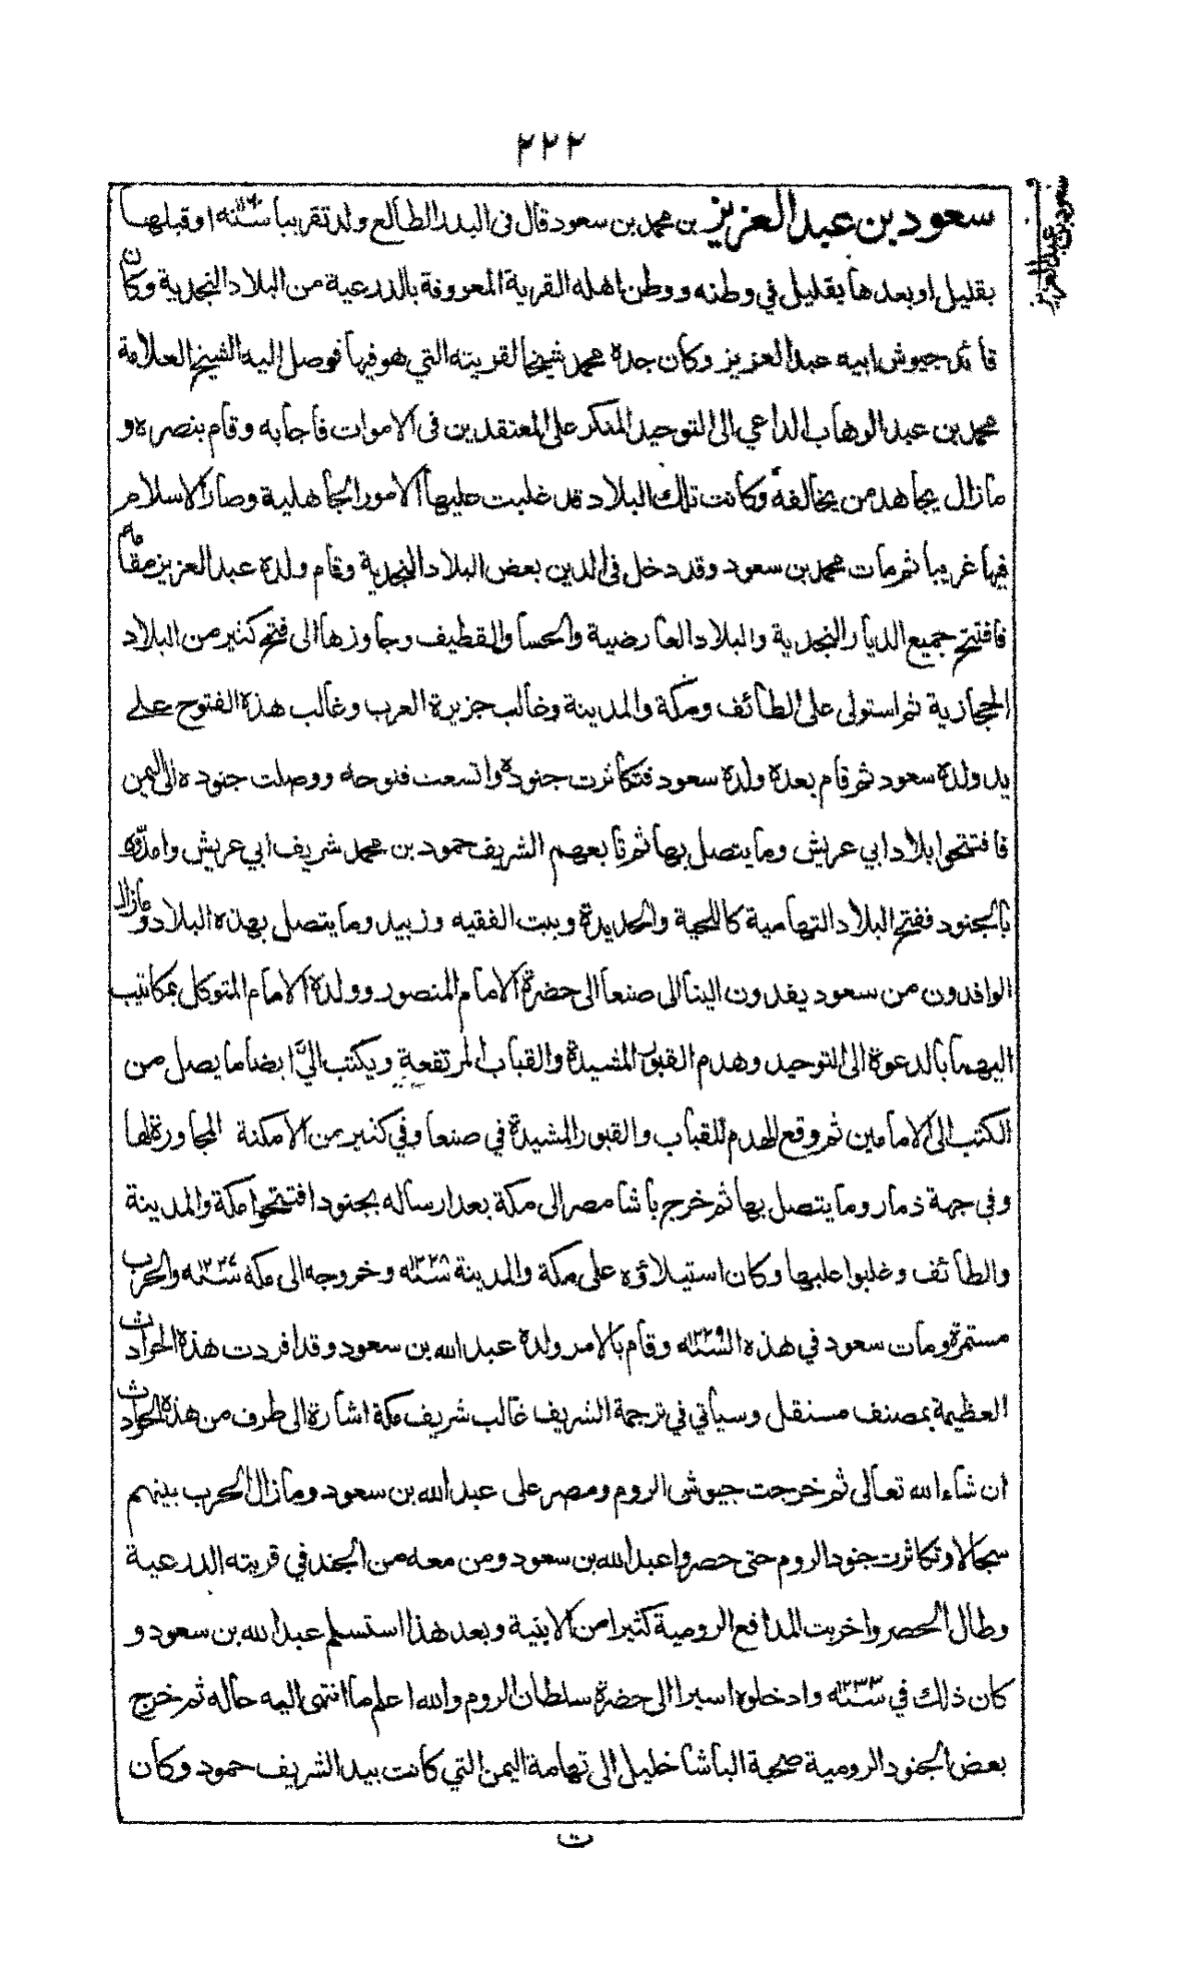 ٢٢٢
سعود بن عبد العزيز
سعود بن عبد العزيز بن محمد بن سعود قال فى البدر الطالع ولد تقريبا سنه او قبلها
بقليل او بعدها بقليل في وطنه ووطن اهله القرية المعروفة بالدرعية من البلاد النجدية وكان
قائد جيوش ابيه عبد العزيز وكان جده محمد شيخا لقريته التي هو فيها فوصل اليه الشيخ العلامة
محمد بن عبد الوهاب الداعي الى التوحيد المنكر على المعتقدين فى الاموات فاجابه وقام بنصره و
مازال يجاهد من يخالفه وكانت تلك البلاد قد غلبت عليها الامور الجاهلية وصار الاسلام
فيها غريبا ثم مات محمد بن سعود وقد دخل فى الدين بعض البلاد النجدية وقام ولده عبد العزيز مقامه
فافتتح جميع الديار النجدية والبلاد العارضية والحسا والقطيف وجاوزها الى فتح كثير من البلاد
الحجازية ثم استولى على الطائف ومكة والمدينة وغالب جزيرة العرب وغالب هذه الفتوح على
يد ولده سعود ثم قام بعده ولده سعود فتكاثرت جنوده واتسعت فتوحه ووصلت جنوده الى اليمن
فافتتحوا بلاد ابي عريش وما يتصل بها ثم تابعهم الشريف حمود بن محمد شريف ابي عريش وامدّوه
بالجنود ففتح البلاد التهامية كاللحية والحديدة وبيت الفقيه وزبيد وما يتصل بهذه البلاد ومازال
الوافدون من سعود يفدون الينا الى صنعا الى حضرة الامام المنصور وولده الامام المتوكل بمكاتيب
اليهما بالدعوة الى التوحيد وهدم القبور المشيدة والقباب المرتفعة ويكتب اليّ ايضا ما يصل من
الكتب الى الامامين ثم وقع الهدم للقباب والقبور المشيدة في صنعا وفي كثير من الامكنة المجاورة لها
وفي جهة ذمار وما يتصل بها ثم خرج باشا مصر الى مكة بعد ارساله بجنود افتتحوا مكة والمدينة
والطائف وغلبوا عليها وكان استيلاؤه على مكة والمدينة ١٢٢٨سنه وخروجه الى مكة سنه والحرب
مستمرة ومات سعود في هذه السنه ١٢٢٩ وقام بالامر ولده عبد الله بن سعود وقد افردت هذه الحوادث
العظيمة بمصنف مستقل وسيأتي في ترجمة الشريف غالب شريف مكة اشارة الى طرف من هذه الحوادث
ان شاء الله تعالى ثم خرجت جيوش الروم ومصر على عبد الله بن سعود ومازال الحرب بينهم
سجالا وتكاثرت جنود الروم حتى حصروا عبد الله بن سعود ومن معه من الجند في قريته الدرعية
وطال الحصر واخربت المدافع الرومية كثيرا من الابنية وبعد هذا استسلم عبد الله بن سعود و
كان ذلك في سنه ١٢٣٣ وادخلوه اسيرا الى حضرة سلطان الروم والله اعلم ما انتهى اليه حاله ثم خرج
بعض الجنود الرومية صحبة الباشا خليل الى تهامة اليمن التي كانت بيد الشريف حمود وكان
ت